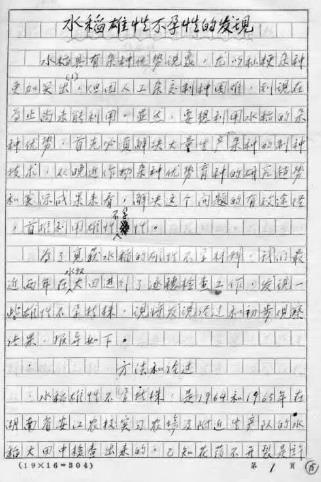 水稻雄性不孕性的发现
水稻具有杂种优势现象，尤以籼粳杂种
更加突出(1)，但因人工杂交制种困难，到现在
为止尚未能利用。显然，要想利用水稻的杂
种优势，首先必须解决大量生产杂种的制种
技术，从晚近作物杂种优势育种的研究趋势
和实际成果来看，解决这个问题的有效途径
，首推利用雄性不孕性。
为了获得水稻的雄性不孕材料，我们最
近两年在水稻大田进行了逐穗检查工作，发现一
些雄性不孕植株，现将发现经过和初步观察
结果，报导如下。
方法和经过
水稻雄性不孕植株，是1964和1965年在
湖南省安江农校实习农场及附近生产队的水
稻大田中检查出来的，已知花药不开裂是
(19×16=304)
第 1 页